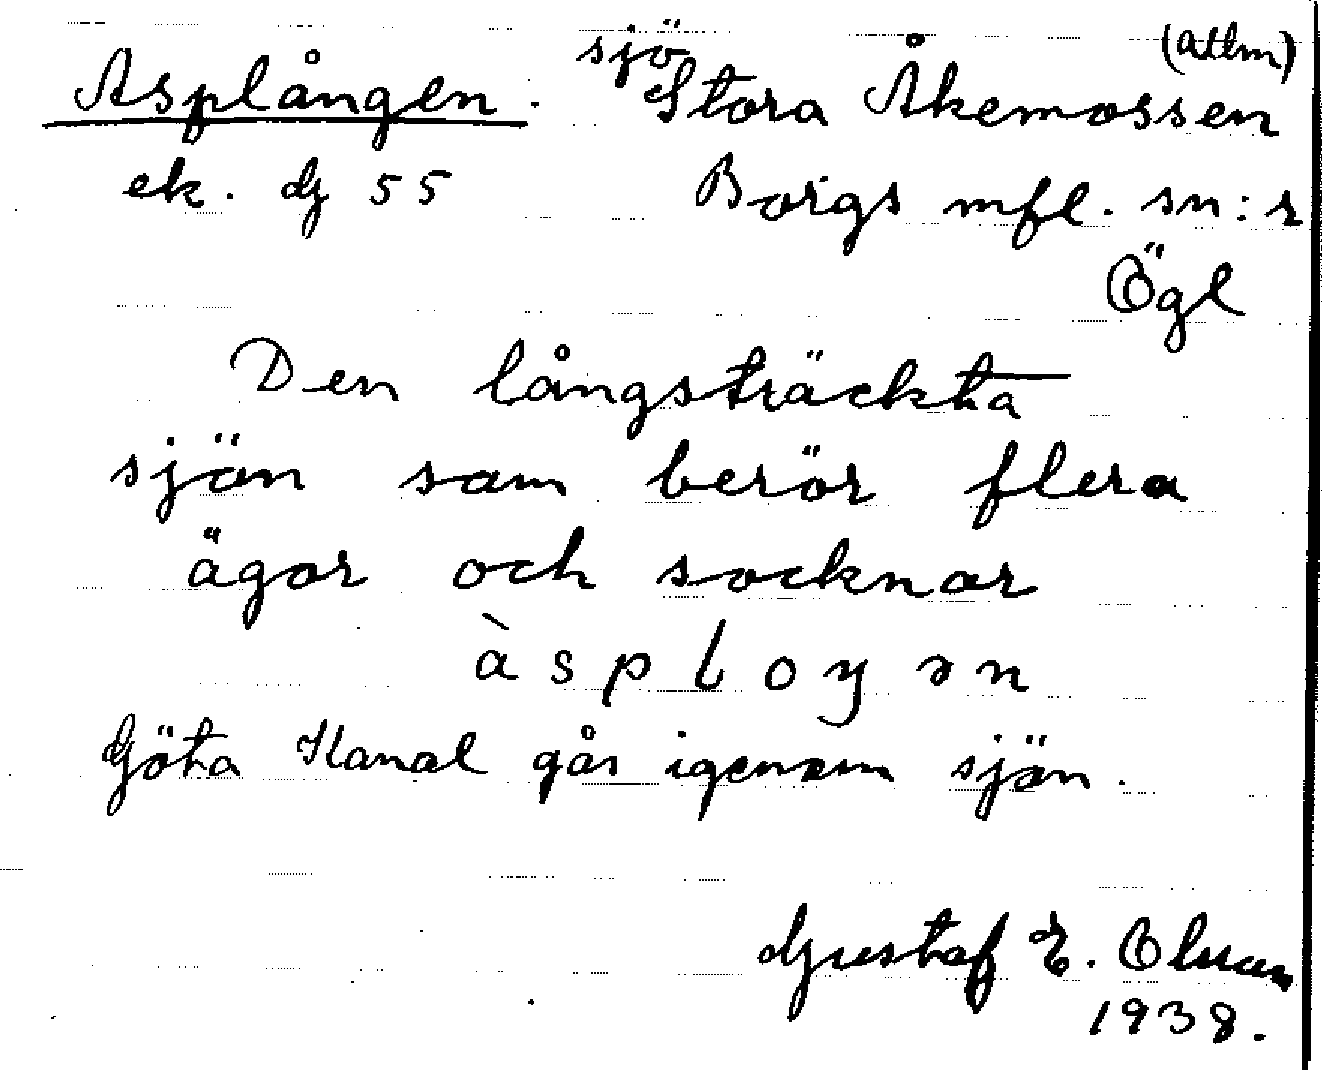 Asplången. sjö Stora Åkemossen (allm)
ek. dj 55 Borgs mfl. sn:r
Ögl
Den långsträckta
sjön som berör flera
ägor och socknar
àsploŋən
Göta Kanal går igenom sjön.
Gustaf E. Olsson
1938.